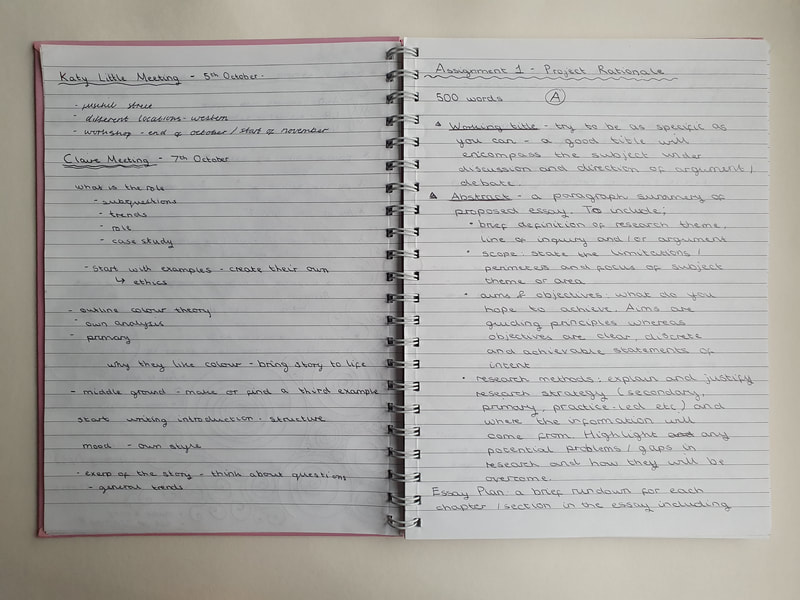 Katy Little Meeting - 5th October.
- useful
- different locations - western
- workshop - end of october / start of november
Clare Meeting - 7th October
what is the role
- subquestions
- trends
- role
- case study
- start with examples - create their own
↳ ethics
- outline colour theory
- own analysis
- primary
why they like colour - bring story to life
- middle ground - make or find a third example
start writing introduction - structure
mood - own style
- of the story - think about questions
- general trends
Assignment 1 - Project Rationale
500 words A
Working title - try to be as specific as
you can - a good title will
encompass the subject wider
discussion and direction of argument /
debate.
Abstract - a paragraph summery of
proposed essay. To include;
• brief definition of research theme,
line of inquiry and / or argument
• scope: state the limitations /
perimeters and focus of subject
theme or area
• aims & objectives: what do you
hope to achieve. Aims are
guiding principles whereas
objectives are clear, discrete
and achievable statements of
intent
• research methods: explain and justify
research strategy (secondary,
primary, practice-led etc) and
where the information will
come from. Highlight any
potential problems / gaps in
research and how they will be
overcome.
Essay Plan a brief rundown for each
chapter / section in the essay including